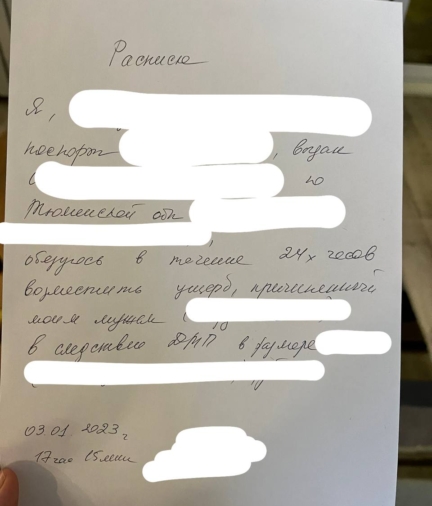 Расписка
Я,
паспорт , выдан
по
Тюменской обл
обязуюсь в течение 24х часов
возместить ущерб, причиненный
моим мужем (
в следствие ДТП в размере
03.01.2023г
17час 15мин